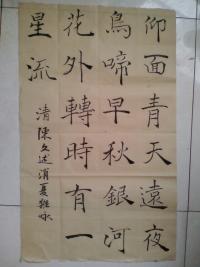 仰面青天遠夜
鳥啼早秋銀河
花外轉時有一
星流
清陳文述消夏雜咏